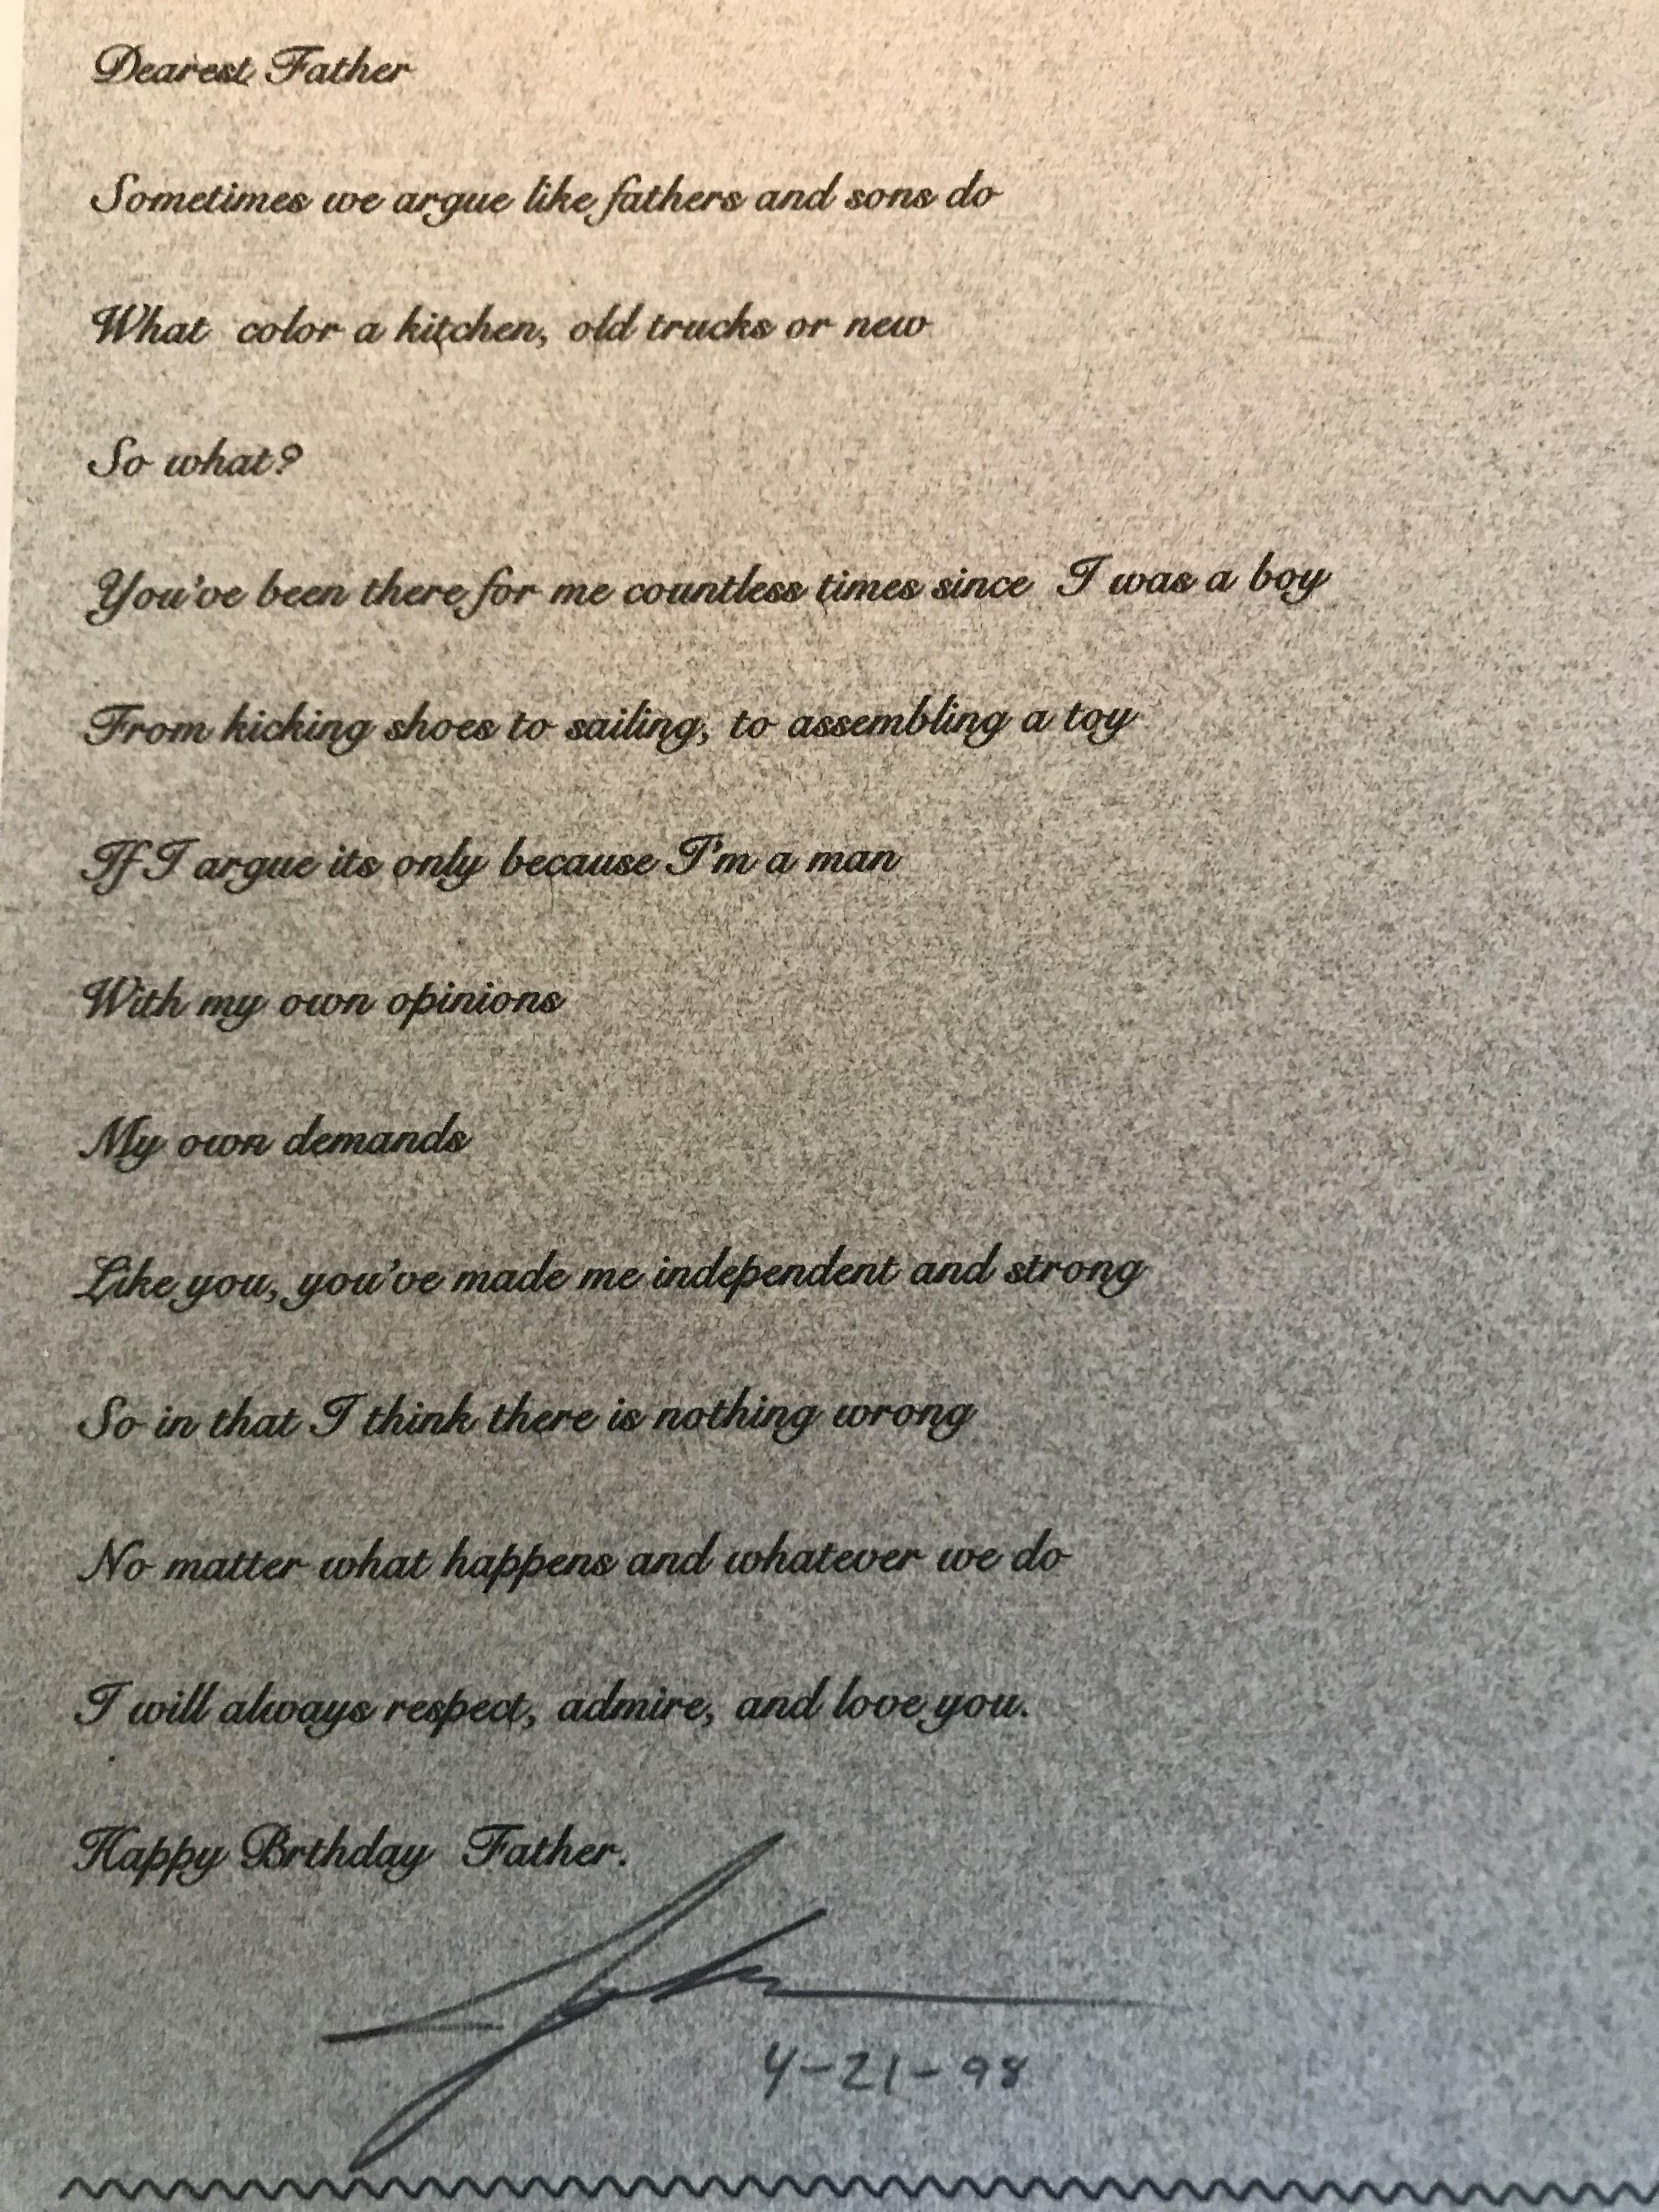 Dearest Father
Sometimes we argue like fathers and sons do
What color a kitchen, old trucks or new
So what?
You've been there for me countless times since I was a boy
From kicking shoes to sailing, to assembling a toy
If I argue its only because I'm a man
With my own opinions
My own demands
Like you, you've made me independent and strong
So in that I think there is nothing wrong
No matter what happens and whatever we do
I will always respect, admire, and love you.
Happy Brthday Father.
John
4-21-98